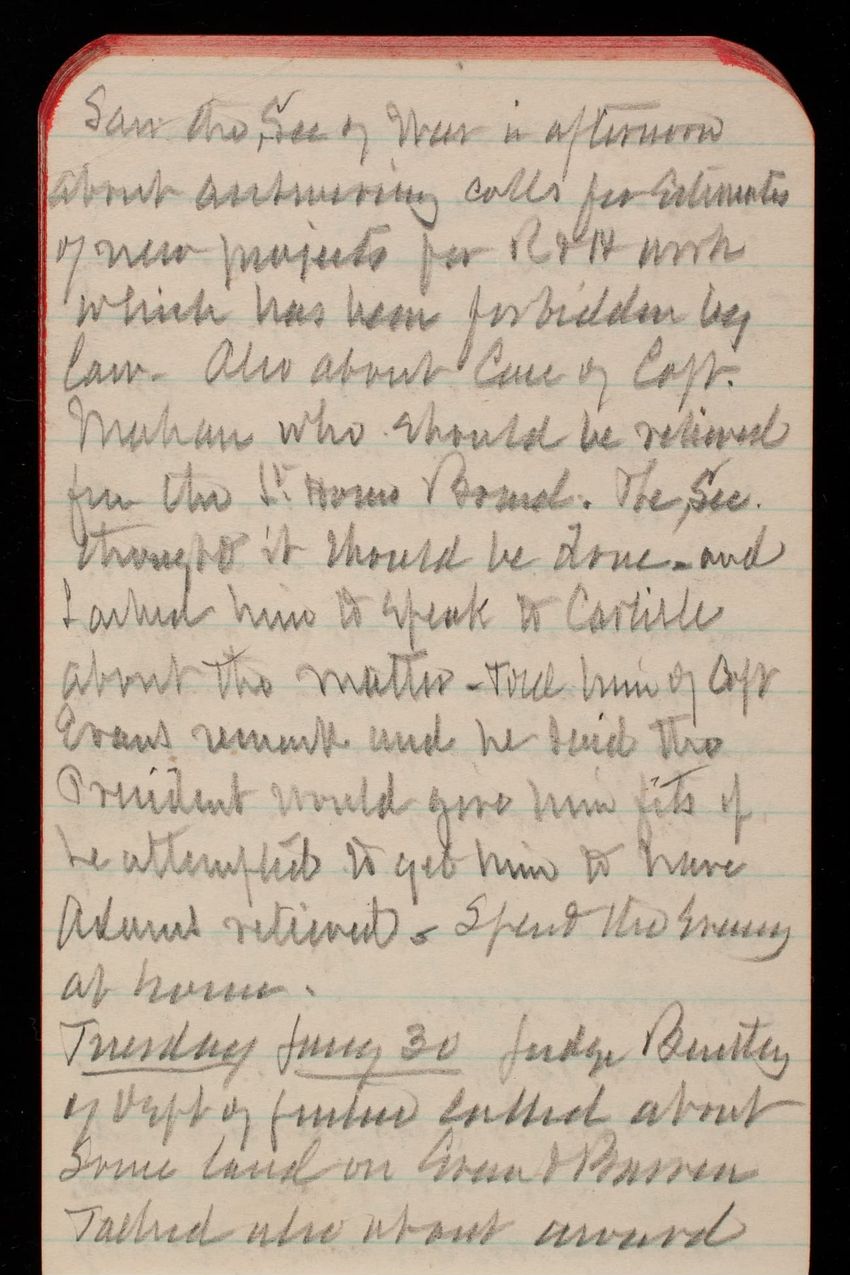 Saw the Sec of War in afternoon
about answering calls for Estimates
of new projects for R & H work
which has been forbidden by
law. Also about Case of Capt.
Mahan who should be relieved
from the Lt House Board. The Sec.
thought it should be done - and
I asked him to speak to Carlisle
about the matter - Told him of Capt
Evans remark and he said the
President would give him fits if
he attempted to get him to have
Adams relieved - Spend the Evening
at home.
Tuesday Jany 30 Judge
of Dept of Justice called about
Some land on Green & Barren
Talked also about award